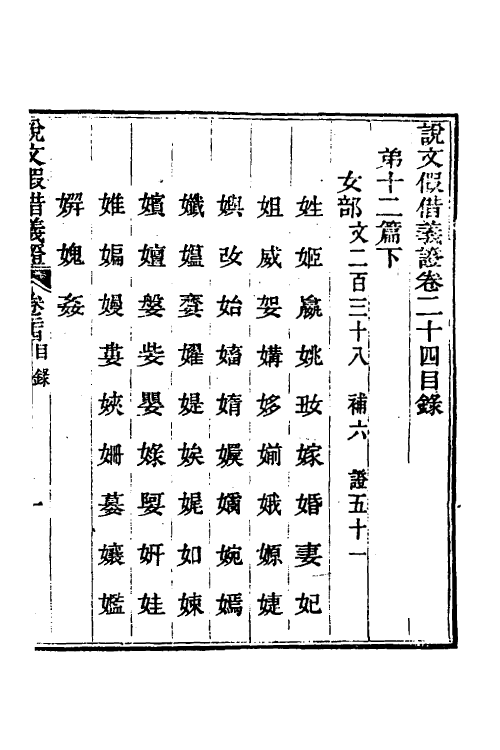 說文假借義證卷二十四目錄
弟十二篇下
女部文二百三十八 補六 證五十一
姓姬嬴姚㚥嫁婚妻妃
姐威妿媾姼媊娥嫄婕
嬩改始嫷婉嫣
孅媼㜪嬥媞娭妮如婡
嬪嬗媻娤嬰媣娶姸娃
婎媥嫚婁娹姍孃嬒
姘媿姦
說文假借義證 卷二十四目錄 一